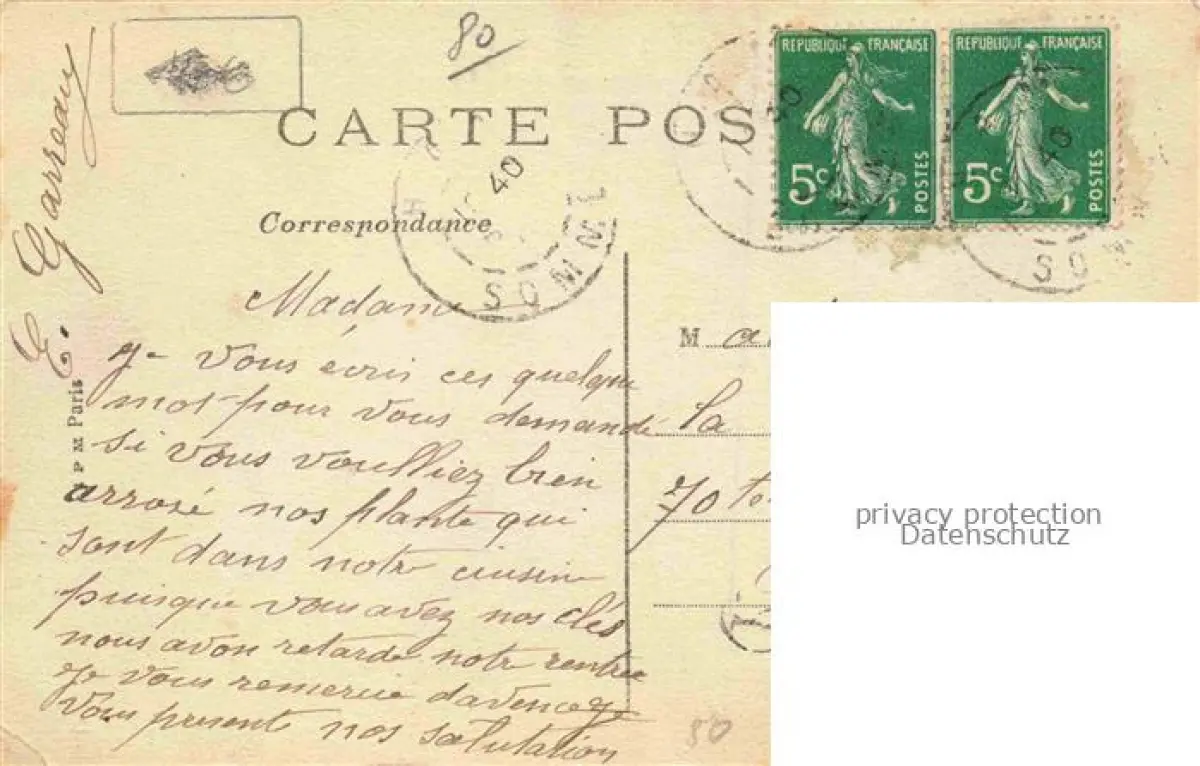 80
E. Garreau
CARTE POS
RÉPUBLIQUE FRANÇAISE
5c
POSTES
RÉPUBLIQUE FRANÇAISE
5c
POSTES
40
SOMME
40
SO
Correspondance
Madame
je vous écris ces quelque
mot pour vous demandé
si vous voulliez bien
arrosé nos plante qui
sont dans notre cuisine
puisque vous avez nos clés
nous avon retarde notre rentree
je vous remercie davence je
vous presente nos salutation
P M Paris
M
la
70
50
privacy protection
Datenschutz